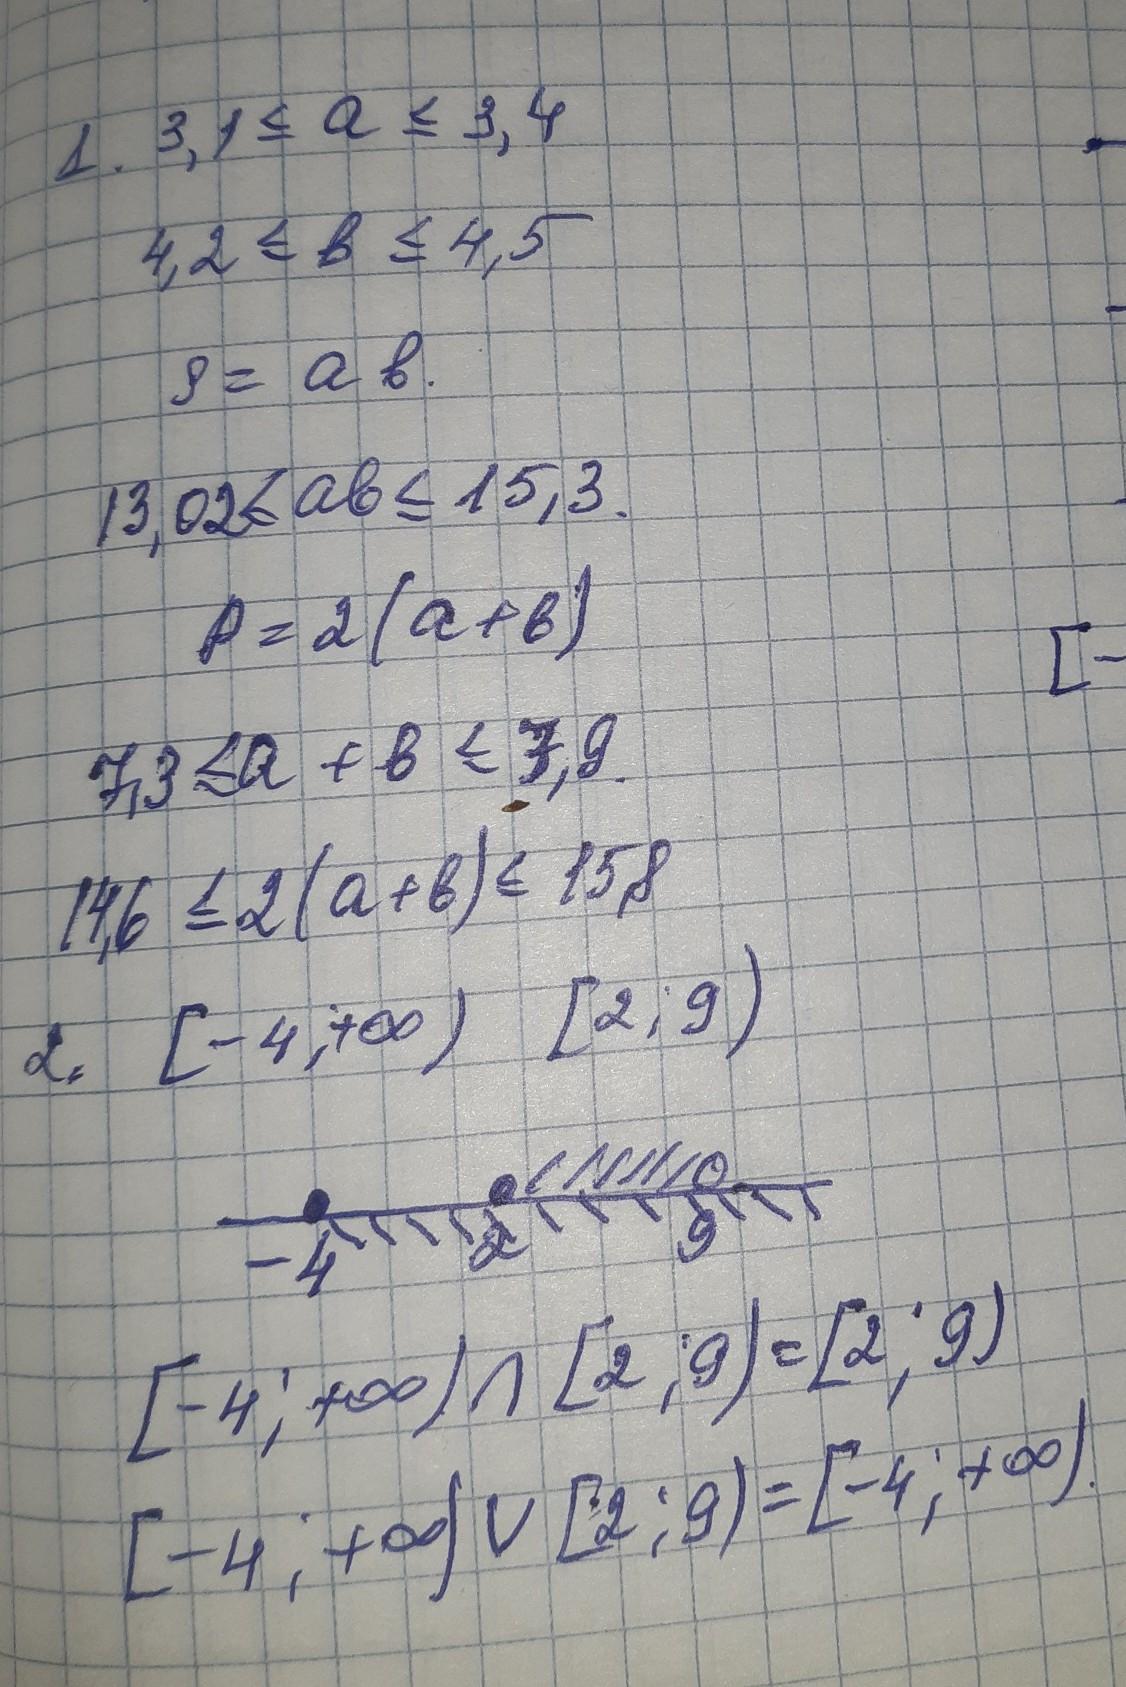 1. 3,1 ≤ a ≤ 3,4
4,2 ≤ в ≤ 4,5
S = a в.
13,02 ≤ aв ≤ 15,3.
P = 2(a+в)
7,3 ≤ a + в ≤ 7,9.
14,6 ≤ 2(a+в) ≤ 15,8
2. [-4;+∞) [2;9)
-4 2 9
[-4;+∞) ∩ [2;9)=[2;9)
[-4;+∞) ∪ [2;9)=[-4;+∞).
[-